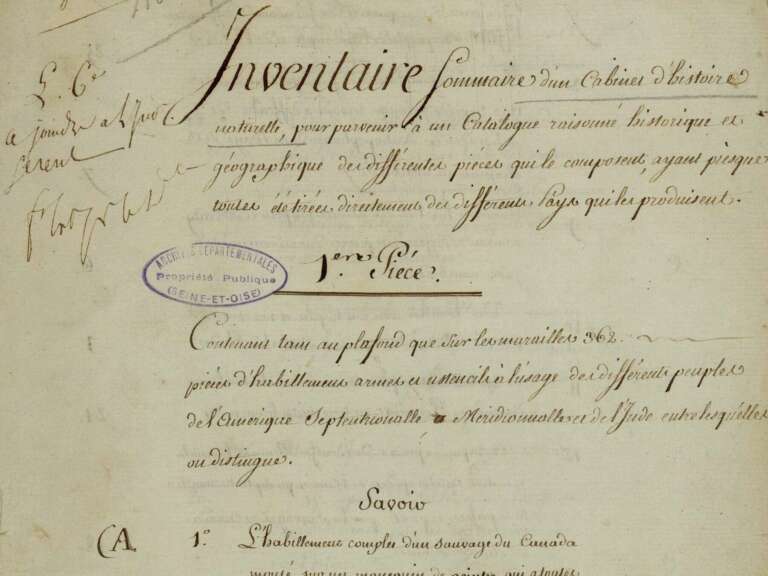 Inventaire Sommaire d'un Cabinet d'histoire
naturelle, pour parvenir à un Catalogue raisonné historique et
géographique des différentes piéces qui le composent, ayant presque
toutes été tirées directement des différents Pays qui les produisent.
a joindre a
ARCHIVES DÉPARTEMENTALES
Propriété Publique
(SEINE-ET-OISE)
1.ere Piéce.
Contenant tant au plafond que sur les murailles 362.
piéces d'habillemens armes et ustencils à l'usage des différents peuples
de l'Amérique Septentrionalle & Méridionnalle et de l'Inde entre lesquelles
on distingue.
Savoir
(A
1.° L'habillement complet d'un sauvage du Canada
monté sur un manequin de